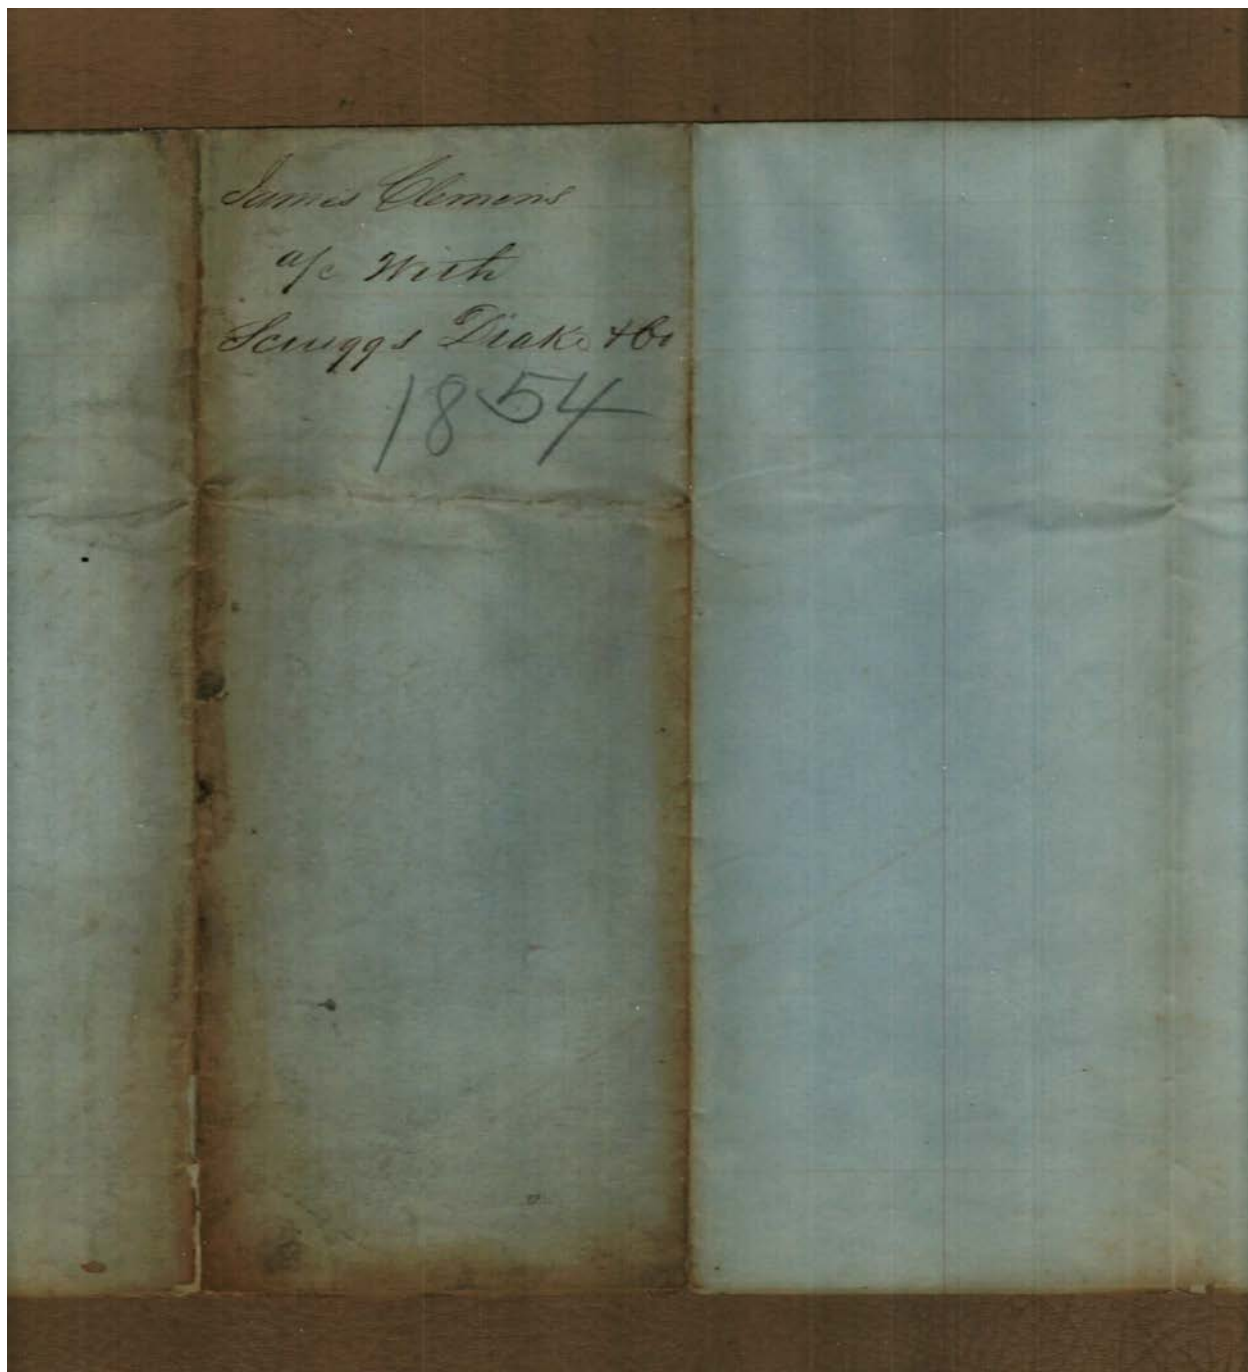 James Clemens
a/c With
Scruggs Drake & Co
1854